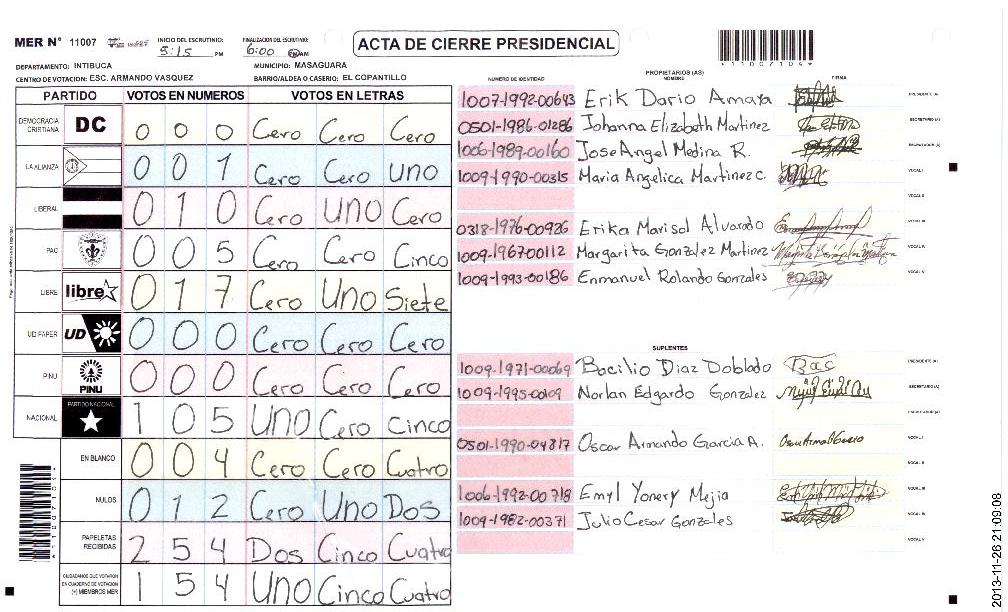 MER Nº 11007
INICIO DEL ESCRUTINIO: 5:15 PM
FINALIZACION DEL ESCRUTINIO: 6:00
ACTA DE CIERRE PRESIDENCIAL
*11007104*
DEPARTAMENTO: INTIBUCA
MUNICIPIO: MASAGUARA
CENTRO DE VOTACION: ESC. ARMANDO VASQUEZ
BARRIO/ALDEA O CASERIO: EL COPANTILLO
PARTIDO VOTOS EN NUMEROS VOTOS EN LETRAS
DEMOCRACIA CRISTIANA DC 0 0 0 Cero Cero Cero
LA ALIANZA 0 0 1 Cero Cero Uno
LIBERAL 0 1 0 Cero UNO Cero
PAC 0 0 5 Cero Cero Cinco
LIBRE libre 0 1 7 Cero Uno Siete
UD FAPER UD 0 0 0 Cero Cero Cero
PINU PINU 0 0 0 Cero Cero Cero
NACIONAL PARTIDO NACIONAL 1 0 5 UNO Cero Cinco
EN BLANCO 0 0 4 Cero Cero Cuatro
NULOS 0 1 2 Cero Uno Dos
PAPELETAS RECIBIDAS 2 5 4 Dos Cinco Cuatro
CIUDADANOS QUE VOTARON EN CUADERNO DE VOTACION (+) MIEMBROS MER 1 5 4 UNO Cinco Cuatro
PROPIETARIOS (AS)
NUMERO DE IDENTIDAD NOMBRE FIRMA
1007-1992-00643 Erik Dario Amaya PRESIDENTE (A)
0501-1986-01286 Johanna Elizabeth Martinez SECRETARIO (A)
1006-1989-00160 Jose Angel Medina R. ESCRUTADOR (A)
1009-1990-00315 Maria Angelica Martinez C. VOCAL I
VOCAL II
0318-1976-00926 Erika Marisol Alvarado VOCAL III
1009-1967-00112 Margarita Gonzalez Martinez VOCAL IV
1009-1993-00186 Enmanuel Rolando Gonzales VOCAL V
SUPLENTES
1009-1971-00069 Bacilio Diaz Doblado PRESIDENTE (A)
1009-1995-00109 Norlan Edgardo Gonzalez SECRETARIO (A)
ESCRUTADOR (A)
0501-1990-04817 Oscar Armando Garcia A. VOCAL I
VOCAL II
1006-1992-00718 Emyl Yonery Mejia VOCAL III
1009-1982-00371 Julio Cesar Gonzales VOCAL IV
VOCAL V
2013-11-26 21:09:08